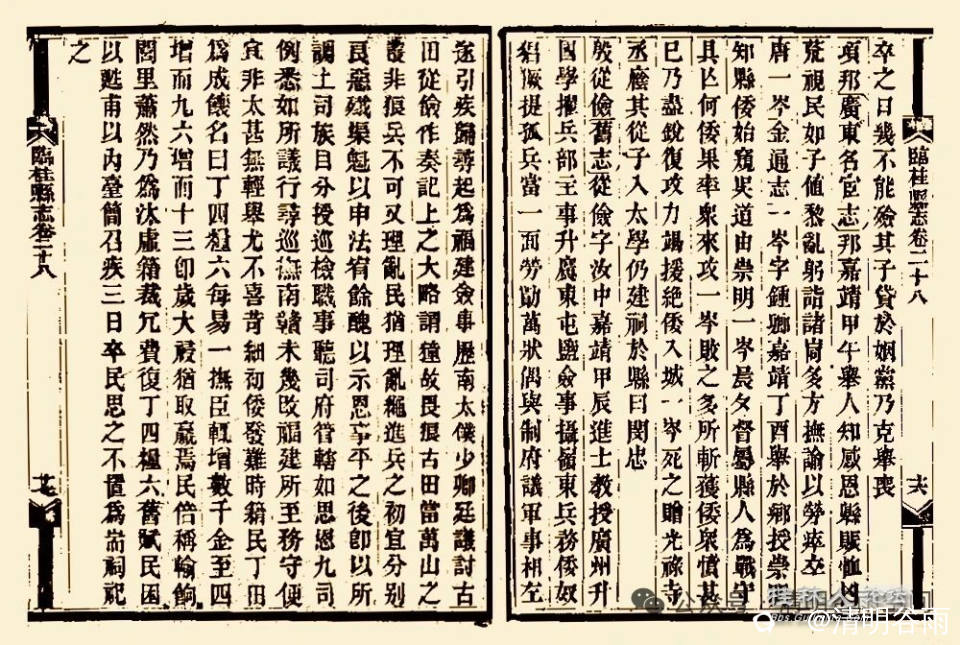 卒之日幾不能殮其子貸於姻黨乃克舉喪
項邦廣東名宦志邦嘉靖甲午舉人知感恩縣賑恤凶
荒視民如子値黎亂躬詣諸峝多方撫諭以勞瘁卒
唐一岑金通志一岑字鍾卿嘉靖丁酉舉於鄉授崇明
知縣倭始窺吳道由崇明一岑晨夕督勵縣人爲戰守
具亾何倭果率衆來攻一岑敗之多所斬獲倭衆憤甚
已乃盡銳復攻力竭援絕倭入城一岑死之贈光祿寺
丞廕其從子入太學仍建祠於縣曰閔忠
殷從儉舊志從儉字汝中嘉靖甲辰進士教授廣州升
國學擢兵部主事升廣東屯鹽僉事攝嶺東兵務倭奴
猖獗提孤兵當一面勞勩萬狀偶與制府議軍事相左
臨桂縣志卷二十八
六
遂引疾歸尋起爲福建僉事歷南太僕少卿廷議討古
田從儉作奏記上之大略謂獞故畏狼古田當萬山之
叢非狼兵不可又理亂民猶理亂繩進兵之初宜分別
良惡殲渠魁以申法宥餘醜以示恩事平之後卽以所
調土司族目分授巡檢職事聽司府管轄如思恩九司
例悉如所議行尋巡撫南贛未幾改福建所至務守便
宜非太甚無輕舉尤不喜苛細初倭發難時籍民丁田
爲成餽名曰丁四糧六每易一撫臣輒增數千金至四
增而九六增而十三卽歲大祲猶取贏焉民倍稱輸餉
閭里蕭然乃爲汰虛籍裁冗費復丁四糧六舊賦民困
以甦甫以內臺簡召疾三日卒民思之不置爲耑祠祀
之
臨桂縣志卷二十八
@清明谷雨